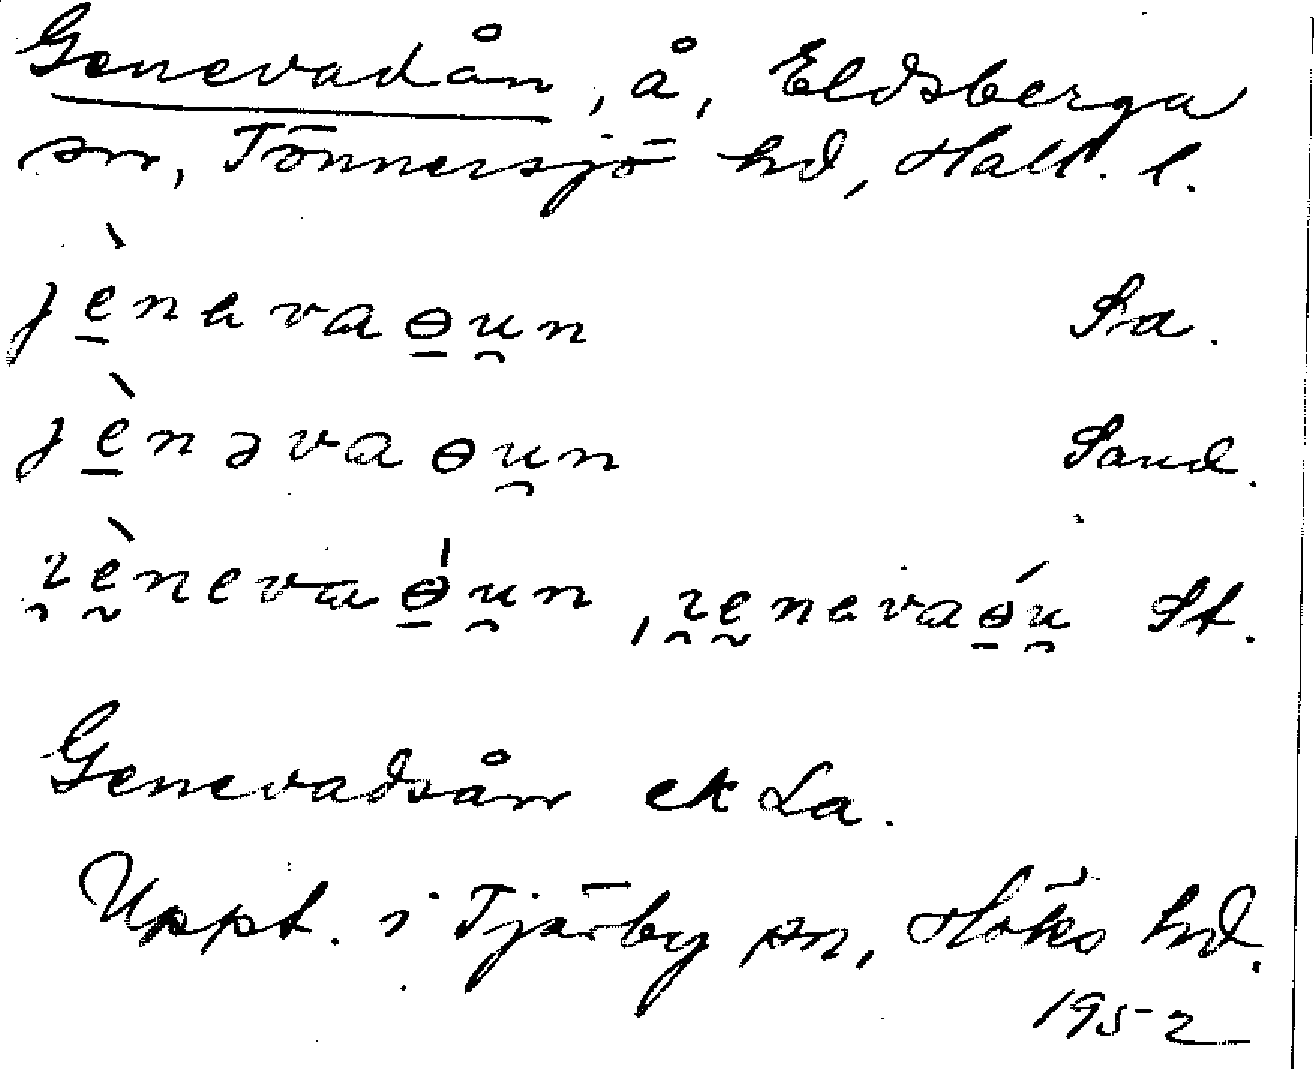 Genevadån, å, Eldsberga
sn, Tönnersjö hd, Hall. l.
jènavaɵun Sa.
jènəvaɵun Sand.
ɀènevaɵ́un, ɀenavaɵ́u St.
Genevadsån ek La.
Uppt. i Tjärby sn, Höks hd.
1952